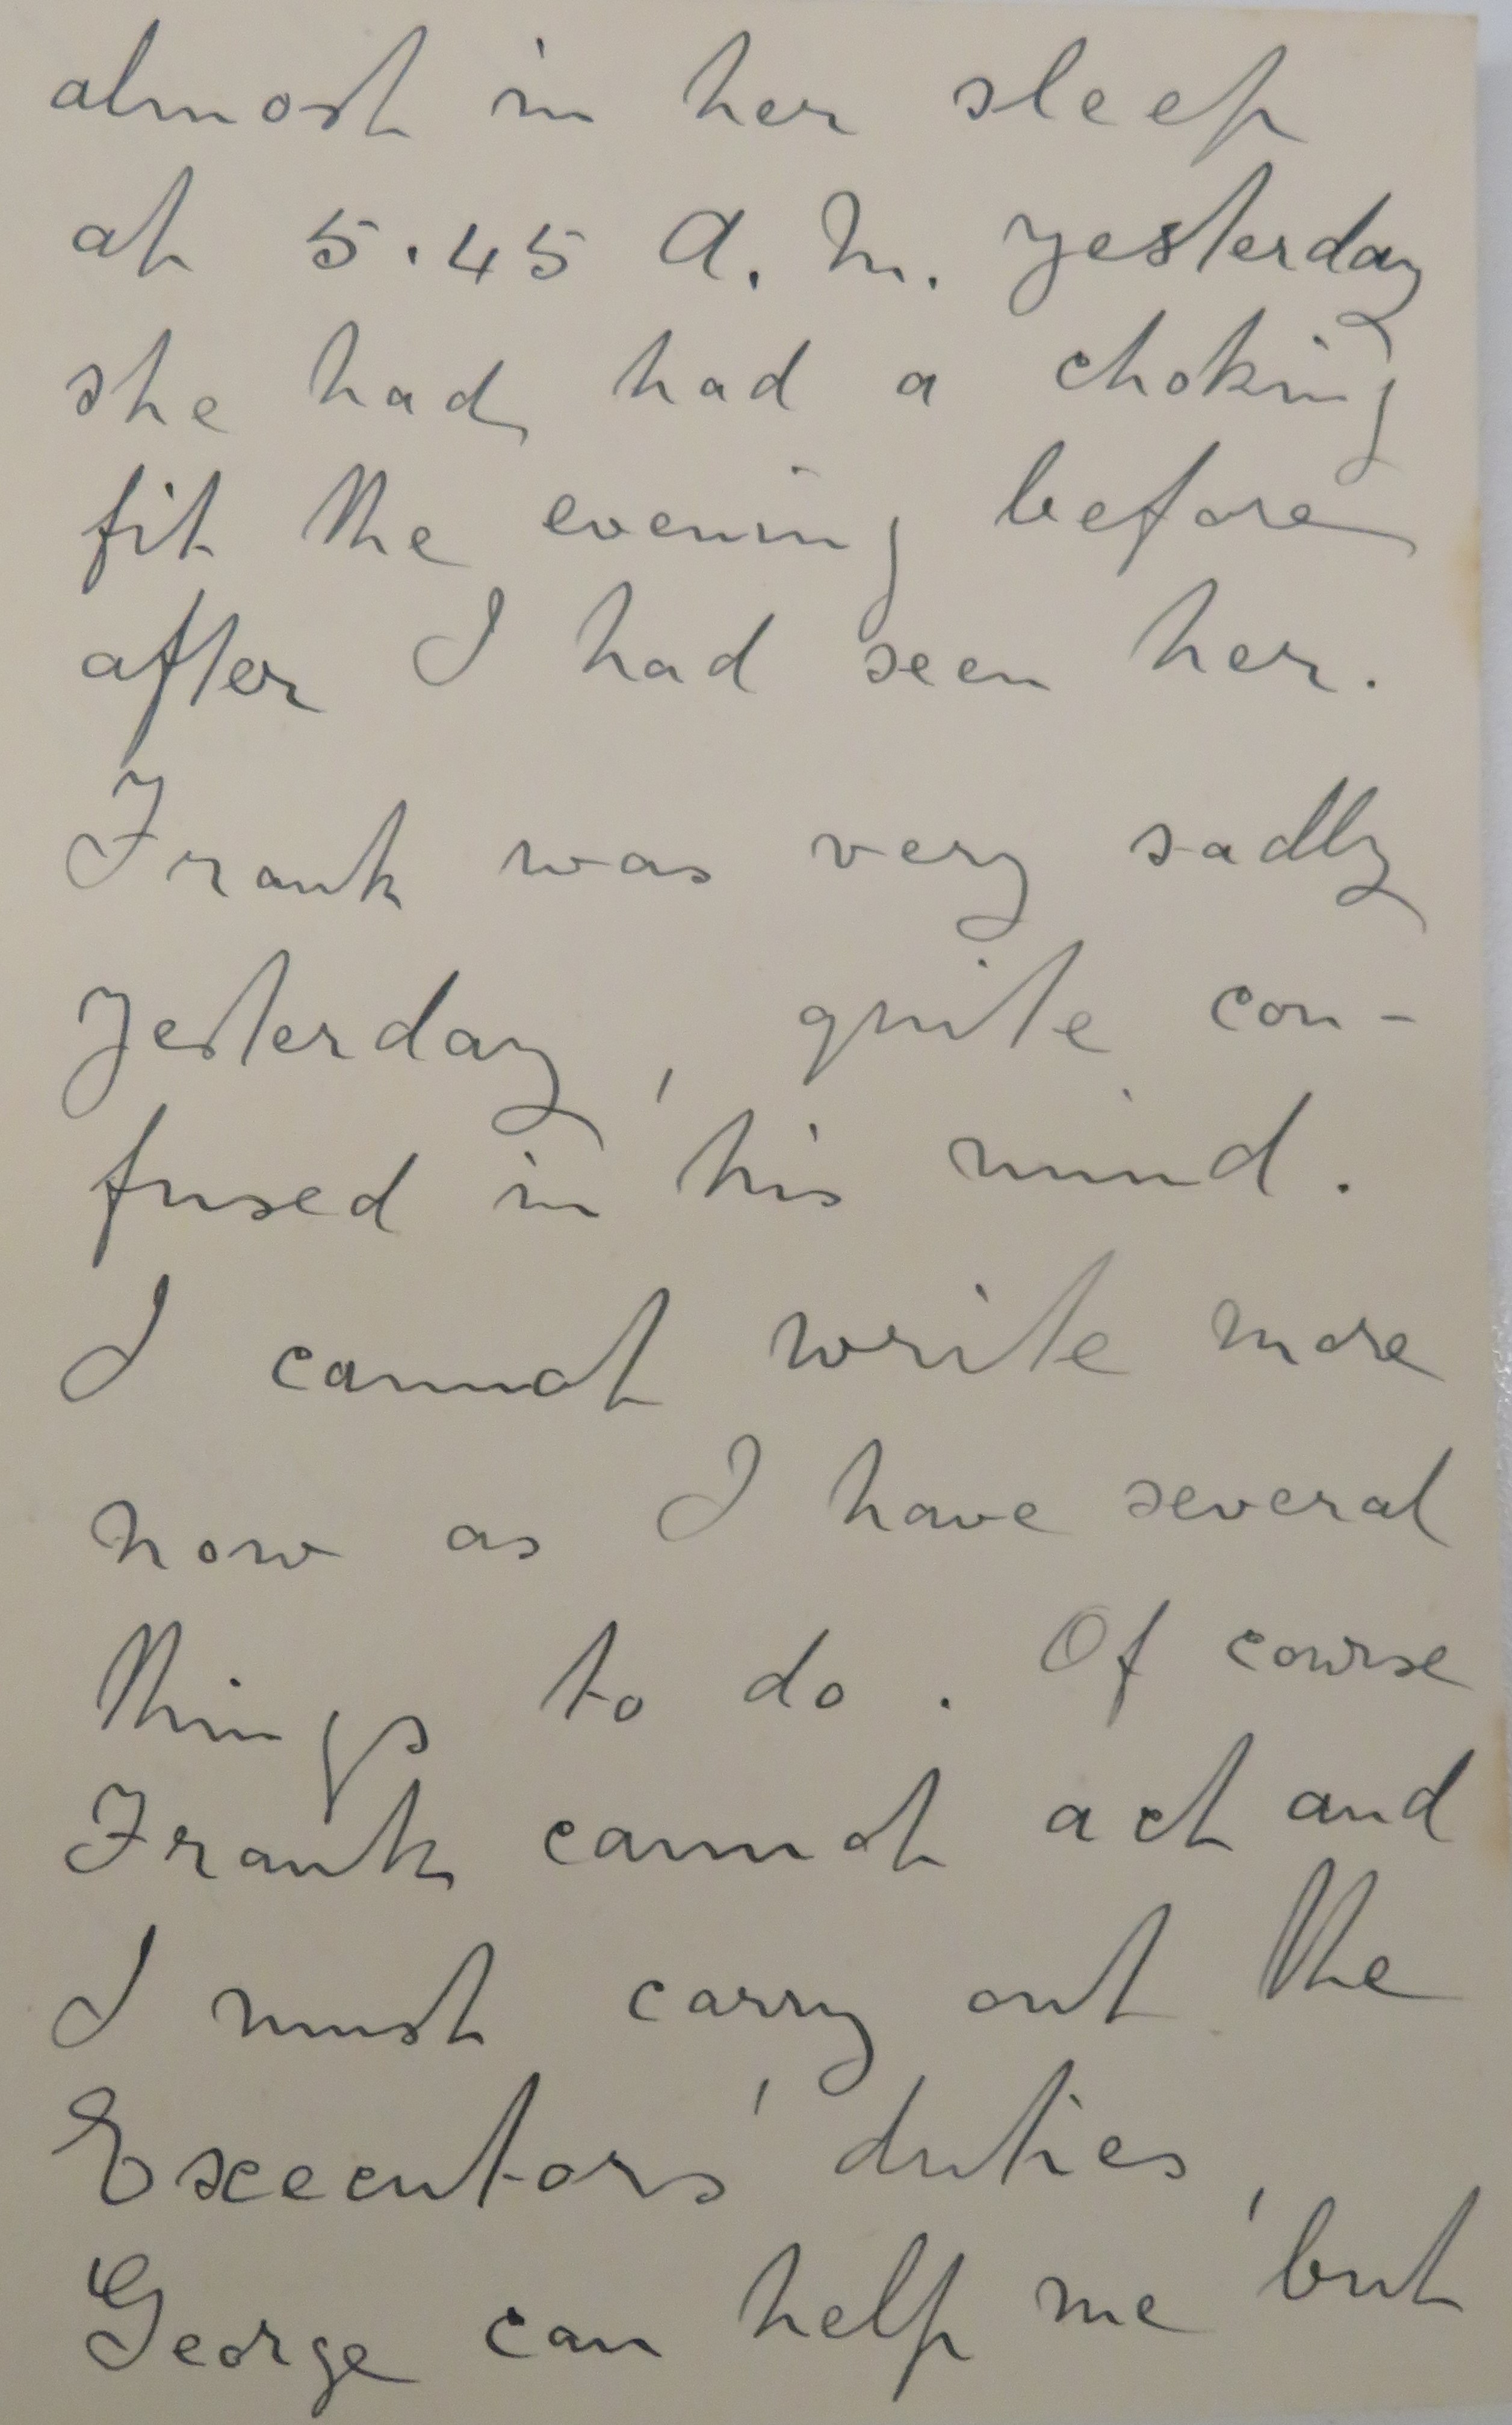 almost in her sleep
at 5.45 A.M. yesterday
she had had a choking
fit the evening before
after I had seen her.
Frank was very sadly
yesterday, quite con-
fused in his mind.
I cannot write more
now as I have several
things to do. Of course
Frank cannot act and
I must carry out the
Executors' duties,
George can help me but